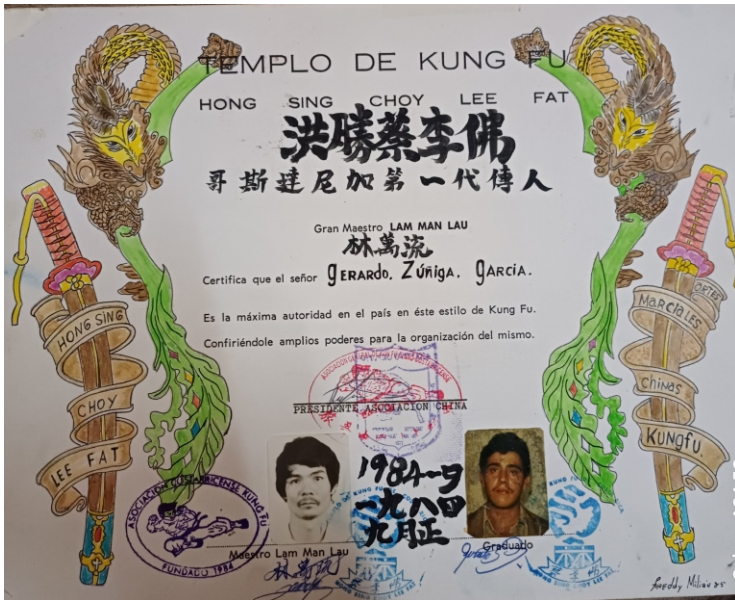 TEMPLO DE KUNG FU
HONG SING CHOY LEE FAT
洪勝蔡李佛
哥斯達尼加第一代傳人
Gran Maestro LAM MAN LAU
林萬流
Certifica que el señor GERARDO. ZÚÑIGA. GARCIA.
Es la máxima autoridad en el país en éste estilo de Kung Fu.
Confiriéndole amplios poderes para la organización del mismo.
PRESIDENTE ASOCIACION CHINA
HONG SING
CHOY
LEE FAT
ARTES
MARCIALES
CHINAS
KUNGFU
1984-9
一九八四
九月正
ASOCIACION COSTARRICENSE KUNG FU
FUNDADO 1984
Maestro Lam Man Lau
林萬流
Graduado